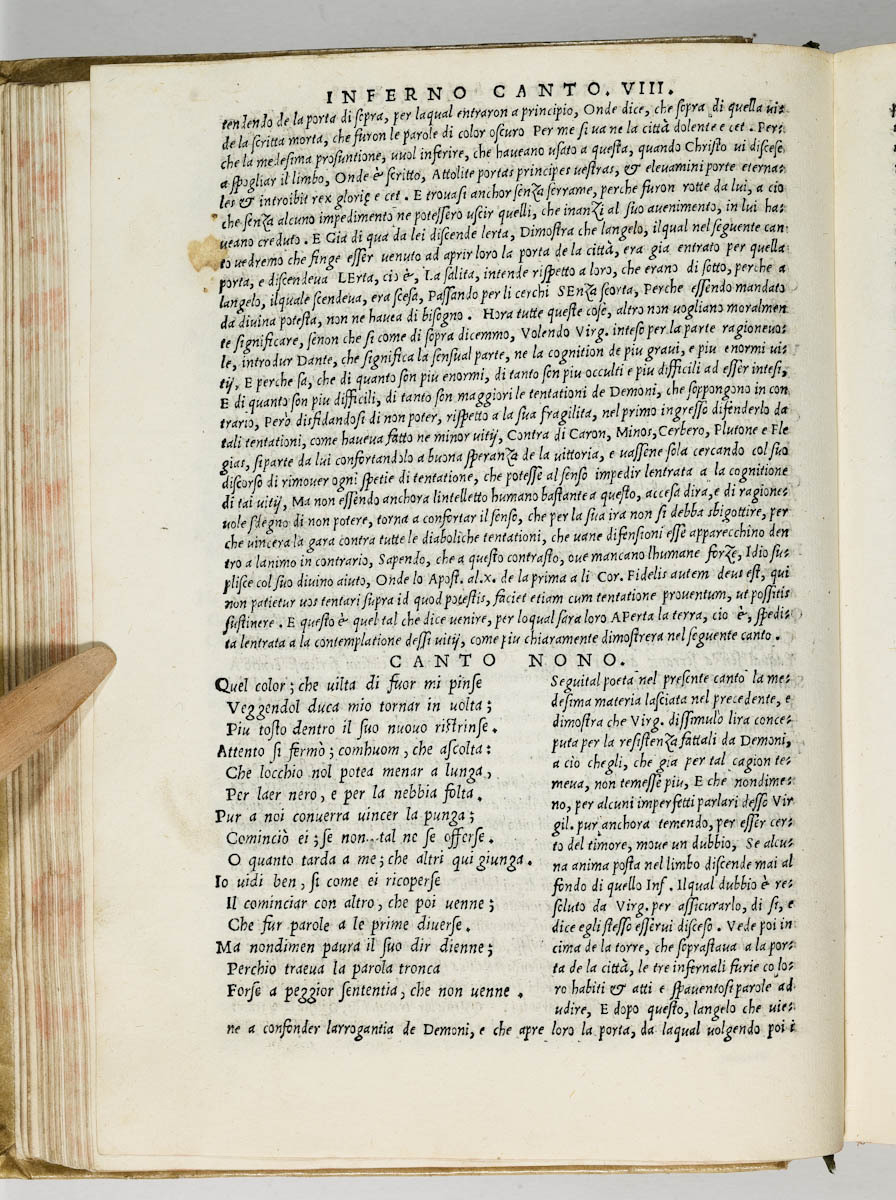 INFERNO CANTO. VIII.
tendendo de la porta di sopra, per laqual entraron a principio, Onde dice, che sopra di quella ui-
de la scritta morta, che furon le parole di color oscuro Per me si ua ne la città dolente e cet. Per-
che la medesima prosuntione, uuol inferire, che haueano usato a questa, quando Christo ui discese
a spogliar il limbo, Onde è scritto, Attolite portas principes uestras, & eleuamini porte eterna-
les & introibit rex glorię e cet. E trouasi anchor senza serrame, perche furon rotte da lui, a cio
che senza alcuno impedimento ne potessero uscir quelli, che inanzi al suo auenimento, in lui ha-
ueano creduto. E Gia di qua da lei discende lerta, Dimostra che langelo, ilqual nel seguente can
to uedremo che finge esser uenuto ad aprir loro la porta de la città, era gia entrato per quella
porta, e discendeua LErta, cio è, La salita, intende rispetto a loro, che erano di sotto, perche a
langelo, ilquale scendeua, era scesa, Passando per li cerchi SEnza scorta, Perche essendo mandato
da diuina potesta, non ne hauea di bisogno. Hora tutte queste cose, altro non uogliano moralmen
te significare, senon che si come di sopra dicemmo, Volendo Virg. inteso per la parte ragioneuo-
le, introdur Dante, che significa la sensual parte, ne la cognition de piu graui, e piu enormi ui-
tij, E perche sa, che di quanto son piu enormi, di tanto son piu occulti e piu difficili ad esser intesi,
E di quanto son piu difficili, di tanto son maggiori le tentationi de Demoni, che soppongono in con
trario, Però disfidandosi di non poter, rispetto a la sua fragilita, nel primo ingresso difenderlo da
tali tentationi, come haueua fatto ne minor uitij, Contra di Caron, Minos, Cerbero, Plutone e Fle
gias, si parte da lui confortandolo a buona speranza de la uittoria, e uassene sola cercando col suo
discorso di rimouer ogni spetie di tentatione, che potesse al senso impedir lentrata a la cognitione
di tai uitij, Ma non essendo anchora lintelletto humano bastante a questo, accesa dira, e di ragione-
uole sdegno di non potere, torna a confortar il senso, che per la sua ira non si debba sbigottire, per
che uincera la gara contra tutte le diaboliche tentationi, che uane difensioni esse apparecchino den
tro a lanimo in contrario, Sapendo, che a questo contrasto, oue mancano lhumane forze, Idio su-
plisce col suo diuino aiuto, Onde lo Apost. al.x. de la prima a li Cor. Fidelis autem deus est, qui
non patietur uos tentari supra id quod potestis, faciet etiam cum tentatione prouentum, ut possitis
sustinere. E questo è quel tal che dice uenire, per loqual sara loro APerta la terra, cio è, spedi-
ta lentrata a la contemplatione dessi uitij, come piu chiaramente dimostrera nel seguente canto.
CANTO NONO.
Quel color; che uilta di fuor mi pinse
Veggendol duca mio tornar in uolta;
Piu tosto dentro il suo nuouo ristrinse.
Attento si fermò; comhuom, che ascolta:
Che locchio nol potea menar a lunga,
Per laer nero, e per la nebbia folta.
Pur a noi conuerra uincer la punga;
Cominciò ei; se non...tal ne se offerse.
O quanto tarda a me; che altri qui giunga.
Io uidi ben, si come ei ricoperse
Il cominciar con altro, che poi uenne;
Che fur parole a le prime diuerse.
Ma nondimen paura il suo dir dienne;
Perchio traeua la parola tronca
Forse a peggior sententia, che non uenne.
Seguital poeta nel presente canto la me-
desima materia lasciata nel precedente, e
dimostra che Virg. dissimulo lira conce-
puta per la resistenza fattali da Demoni,
a cio chegli, che gia per tal cagion te-
meua, non temesse piu, E che nondime-
no, per alcuni imperfetti parlari desso Vir
gil. pur anchora temendo, per esser cer-
to del timore, moue un dubbio, Se alcu-
na anima posta nel limbo discende mai al
fondo di quello Inf. Ilqual dubbio è re-
soluto da Virg. per assicurarlo, di si, e
dice egli stesso esserui disceso. Vede poi in
cima de la torre, che soprastaua a la por-
ta de la città, le tre infernali furie co lo-
ro habiti & atti e spauentosi parole ad
udire, E dopo questo, langelo che uie-
ne a confonder larrogantia de Demoni, e che apre loro la porta, da laqual uolgendo poi i